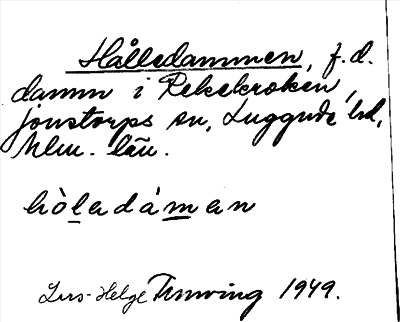 Hålledammen, f.d.
damm i Rekekroken,
Jonstorps sn, Luggude hd,
Mlm. län.
hòledámen
Lars-Helge Tunving 1949.